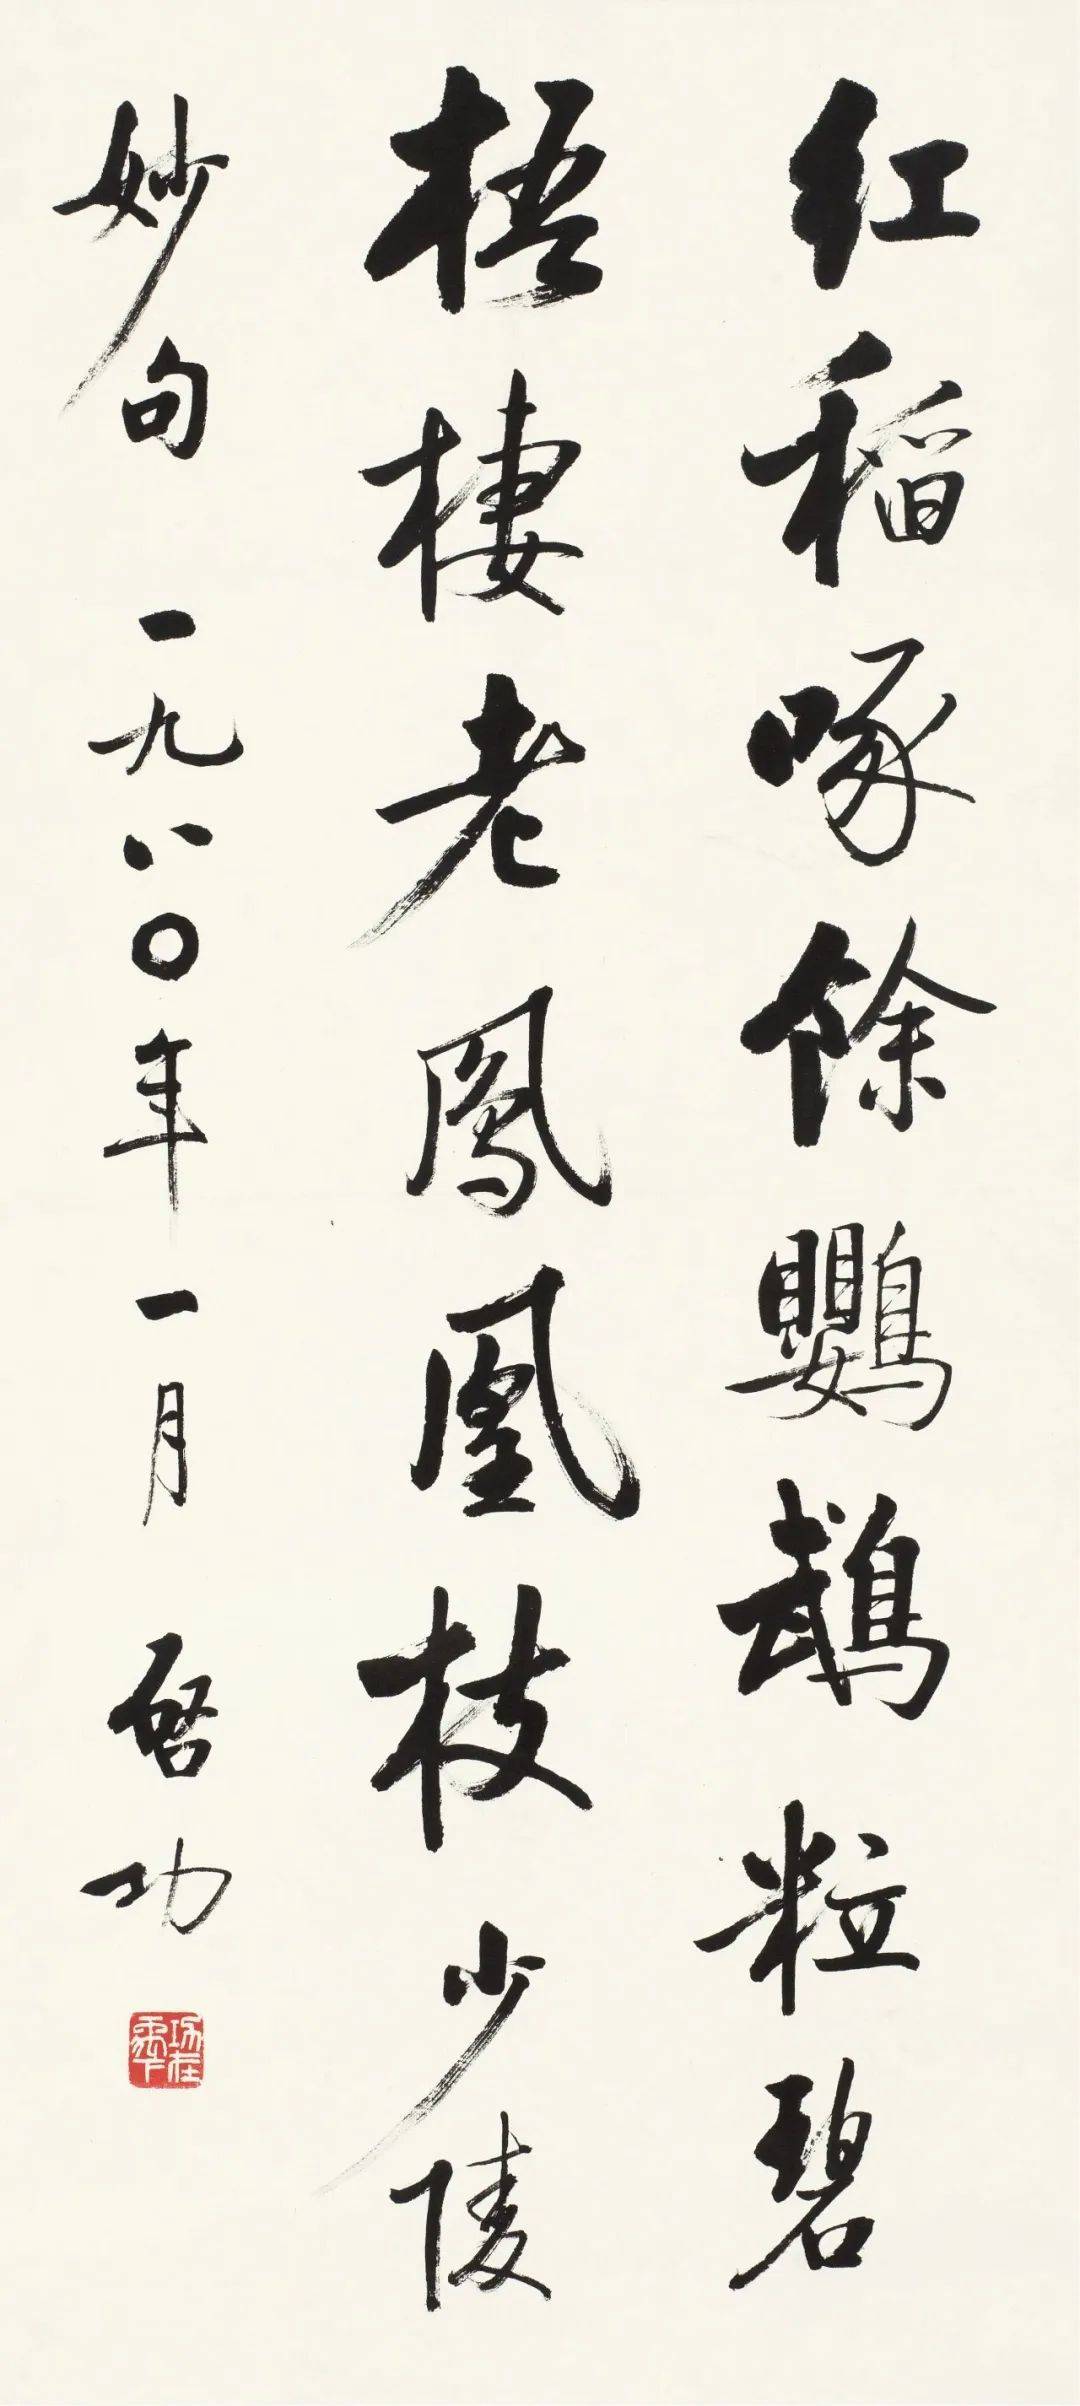 红稻啄餘鸚鵡粒碧
梧棲老鳳凰枝少陵
妙句一九八〇年一月啓功